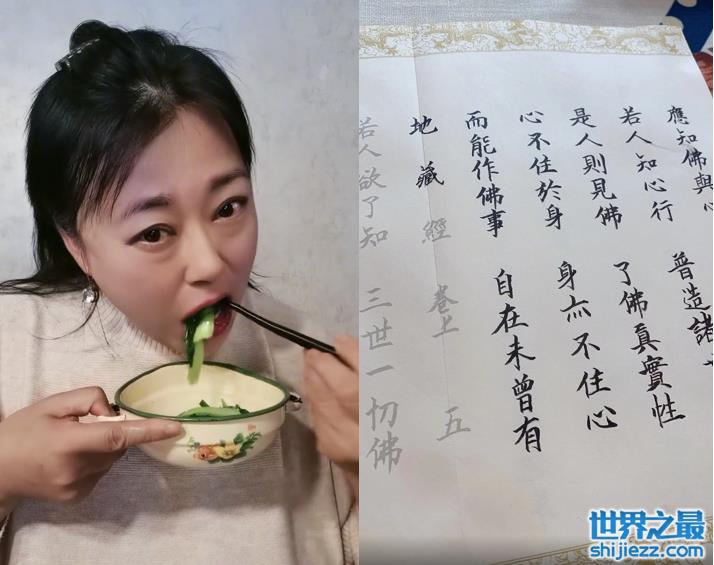 應知佛與心
若人知心行 普造諸
是人則見佛 了佛真實性
心不住於身 身亦不住心
而能作佛事 自在未曾有
地藏經 卷上 五
若人欲了知 三世一切佛
世界之最
shijiezz.com